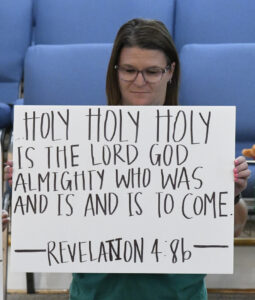 HOLY HOLY HOLY
IS THE LORD GOD
ALMIGHTY WHO WAS
AND IS AND IS TO COME.
—REVELATION 4:8b—